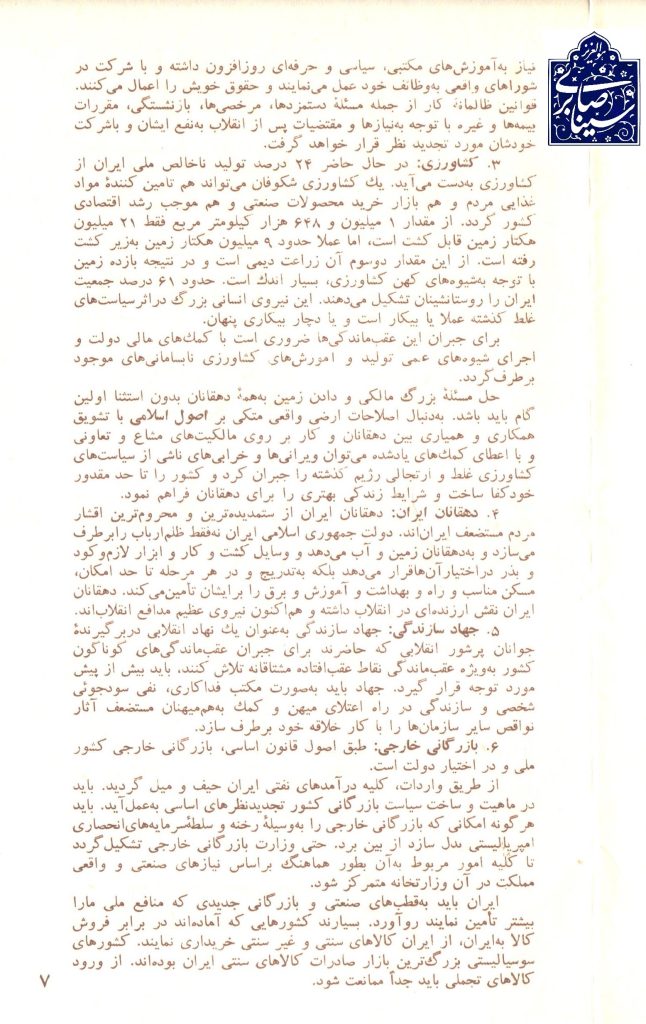 نیاز به‌آموزش‌های مکتبی، سیاسی و حرفه‌ای روزافزون داشته و با شرکت در
شوراهای واقعی به‌وظائف خود عمل می‌نمایند و حقوق خویش را اعمال می‌کنند.
قوانین ظالمانهٔ کار از جمله مسئلهٔ دستمزدها، مرخصی‌ها، بازنشستگی، مقررات
بیمه‌ها و غیره با توجه به‌نیازها و مقتضیات پس از انقلاب به‌نفع ایشان و باشرکت
خودشان مورد تجدید نظر قرار خواهد گرفت.
۳. کشاورزی: در حال حاضر ۲۴ درصد تولید ناخالص ملی ایران از
کشاورزی به‌دست می‌آید. یك کشاورزی شکوفان می‌تواند هم تامین کنندهٔ مواد
غذایی مردم و هم بازار خرید محصولات صنعتی و هم موجب رشد اقتصادی
کشور گردد. از مقدار ۱ میلیون و ۶۴۸ هزار کیلومتر مربع فقط ۲۱ میلیون
هکتار زمین قابل کشت است، اما عملا حدود ۹ میلیون هکتار زمین به‌زیر کشت
رفته است. از این مقدار دوسوم آن زراعت دیمی است و در نتیجه بازده زمین
با توجه به‌شیوه‌های کهن کشاورزی، بسیار اندك است. حدود ۶۱ درصد جمعیت
ایران را روستانشینان تشکیل می‌دهند. این نیروی انسانی بزرگ دراثرسیاست‌های
غلط گذشته عملا یا بیکار است و یا دچار بیکاری پنهان.
برای جبران این عقب‌ماندگی‌ها ضروری است با کمك‌های مالی دولت و
اجرای شیوه‌های علمی تولید و آموزش‌های کشاورزی نابسامانی‌های موجود
برطرف‌گردد.
حل مسئلهٔ بزرگ مالکی و دادن زمین به‌همهٔ دهقانان بدون استثنا اولین
گام باید باشد. به‌دنبال اصلاحات ارضی واقعی متکی بر اصول اسلامی با تشویق
همکاری و همیاری بین دهقانان و کار بر روی مالکیت‌های مشاع و تعاونی
و با اعطای کمك‌های یادشده می‌توان ویرانی‌ها و خرابی‌های ناشی از سیاست‌های
کشاورزی غلط و ارتجالی رژیم گذشته را جبران کرد و کشور را تا حد مقدور
خودکفا ساخت و شرایط زندگی بهتری را برای دهقانان فراهم نمود.
۴. دهقانان ایران: دهقانان ایران از ستمدیده‌ترین و محروم‌ترین اقشار
مردم مستضعف ایران‌اند. دولت جمهوری اسلامی ایران نه‌فقط ظلم‌ارباب رابرطرف
می‌سازد و به‌دهقانان زمین و آب می‌دهد و وسایل کشت و کار و ابزار لازم‌وکود
و بذر دراختیارآن‌هاقرار می‌دهد بلکه به‌تدریج و در هر مرحله تا حد امکان،
مسکن مناسب و راه و بهداشت و آموزش و برق را برایشان تأمین‌می‌کند. دهقانان
ایران نقش ارزنده‌ای در انقلاب داشته و هم‌اکنون نیروی عظیم مدافع انقلاب‌اند.
۵. جهاد سازندگی: جهاد سازندگی به‌عنوان یك نهاد انقلابی دربرگیرندهٔ
جوانان پرشور انقلابی که حاضرند برای جبران عقب‌ماندگی‌های گوناگون
کشور به‌ویژه عقب‌ماندگی نقاط عقب‌افتاده مشتاقانه تلاش کنند، باید بیش از پیش
مورد توجه قرار گیرد. جهاد باید به‌صورت مکتب فداکاری، نفی سودجوئی
شخصی و سازندگی در راه اعتلای میهن و کمك به‌هم‌میهنان مستضعف آثار
نواقص سایر سازمان‌ها را با کار خلاقه خود برطرف سازد.
۶. بازرگانی خارجی: طبق اصول قانون اساسی، بازرگانی خارجی کشور
ملی و در اختیار دولت است.
از طریق واردات، کلیه درآمدهای نفتی ایران حیف و میل گردید. باید
در ماهیت و ساخت سیاست بازرگانی کشور تجدیدنظرهای اساسی به‌عمل‌آید. باید
هرگونه امکانی که بازرگانی خارجی را به‌وسیلهٔ رخنه و سلطهٔ‌سرمایه‌های‌انحصاری
امپریالیستی بدل سازد از بین برد. حتی وزارت بازرگانی خارجی تشکیل‌گردد
تا کلیه امور مربوط به‌آن بطور هماهنگ براساس نیازهای صنعتی و واقعی
مملکت در آن وزارتخانه متمرکز شود.
ایران باید به‌قطب‌های صنعتی و بازرگانی جدیدی که منافع ملی مارا
بیشتر تأمین نمایند روآورد. بسیارند کشورهایی که آماده‌اند در برابر فروش
کالا به‌ایران، از ایران کالاهای سنتی و غیر سنتی خریداری نمایند. کشورهای
سوسیالیستی بزرگ‌ترین بازار صادرات کالاهای سنتی ایران بوده‌اند. از ورود
کالاهای تجملی باید جداً ممانعت شود.
۷